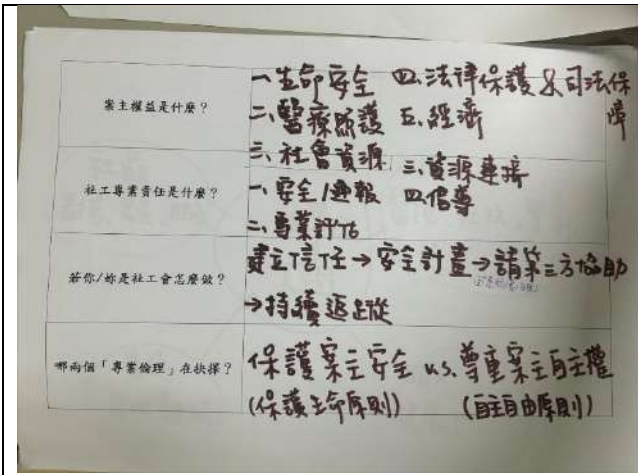 案主權益是什麼？
一、生命安全 四、法律保護&司法保障
二、醫療照護 五、經濟
三、社會資源
社工專業責任是什麼？
一、安全/通報
二、專業評估
三、資源連結
四、倡導
若你/妳是社工會怎麼做？
建立信任→安全計畫→請第三方協助
→持續追蹤
哪兩個「專業倫理」在抉擇？
保護案主安全 v.s. 尊重案主自主權
(保護生命原則) (自主自由原則)